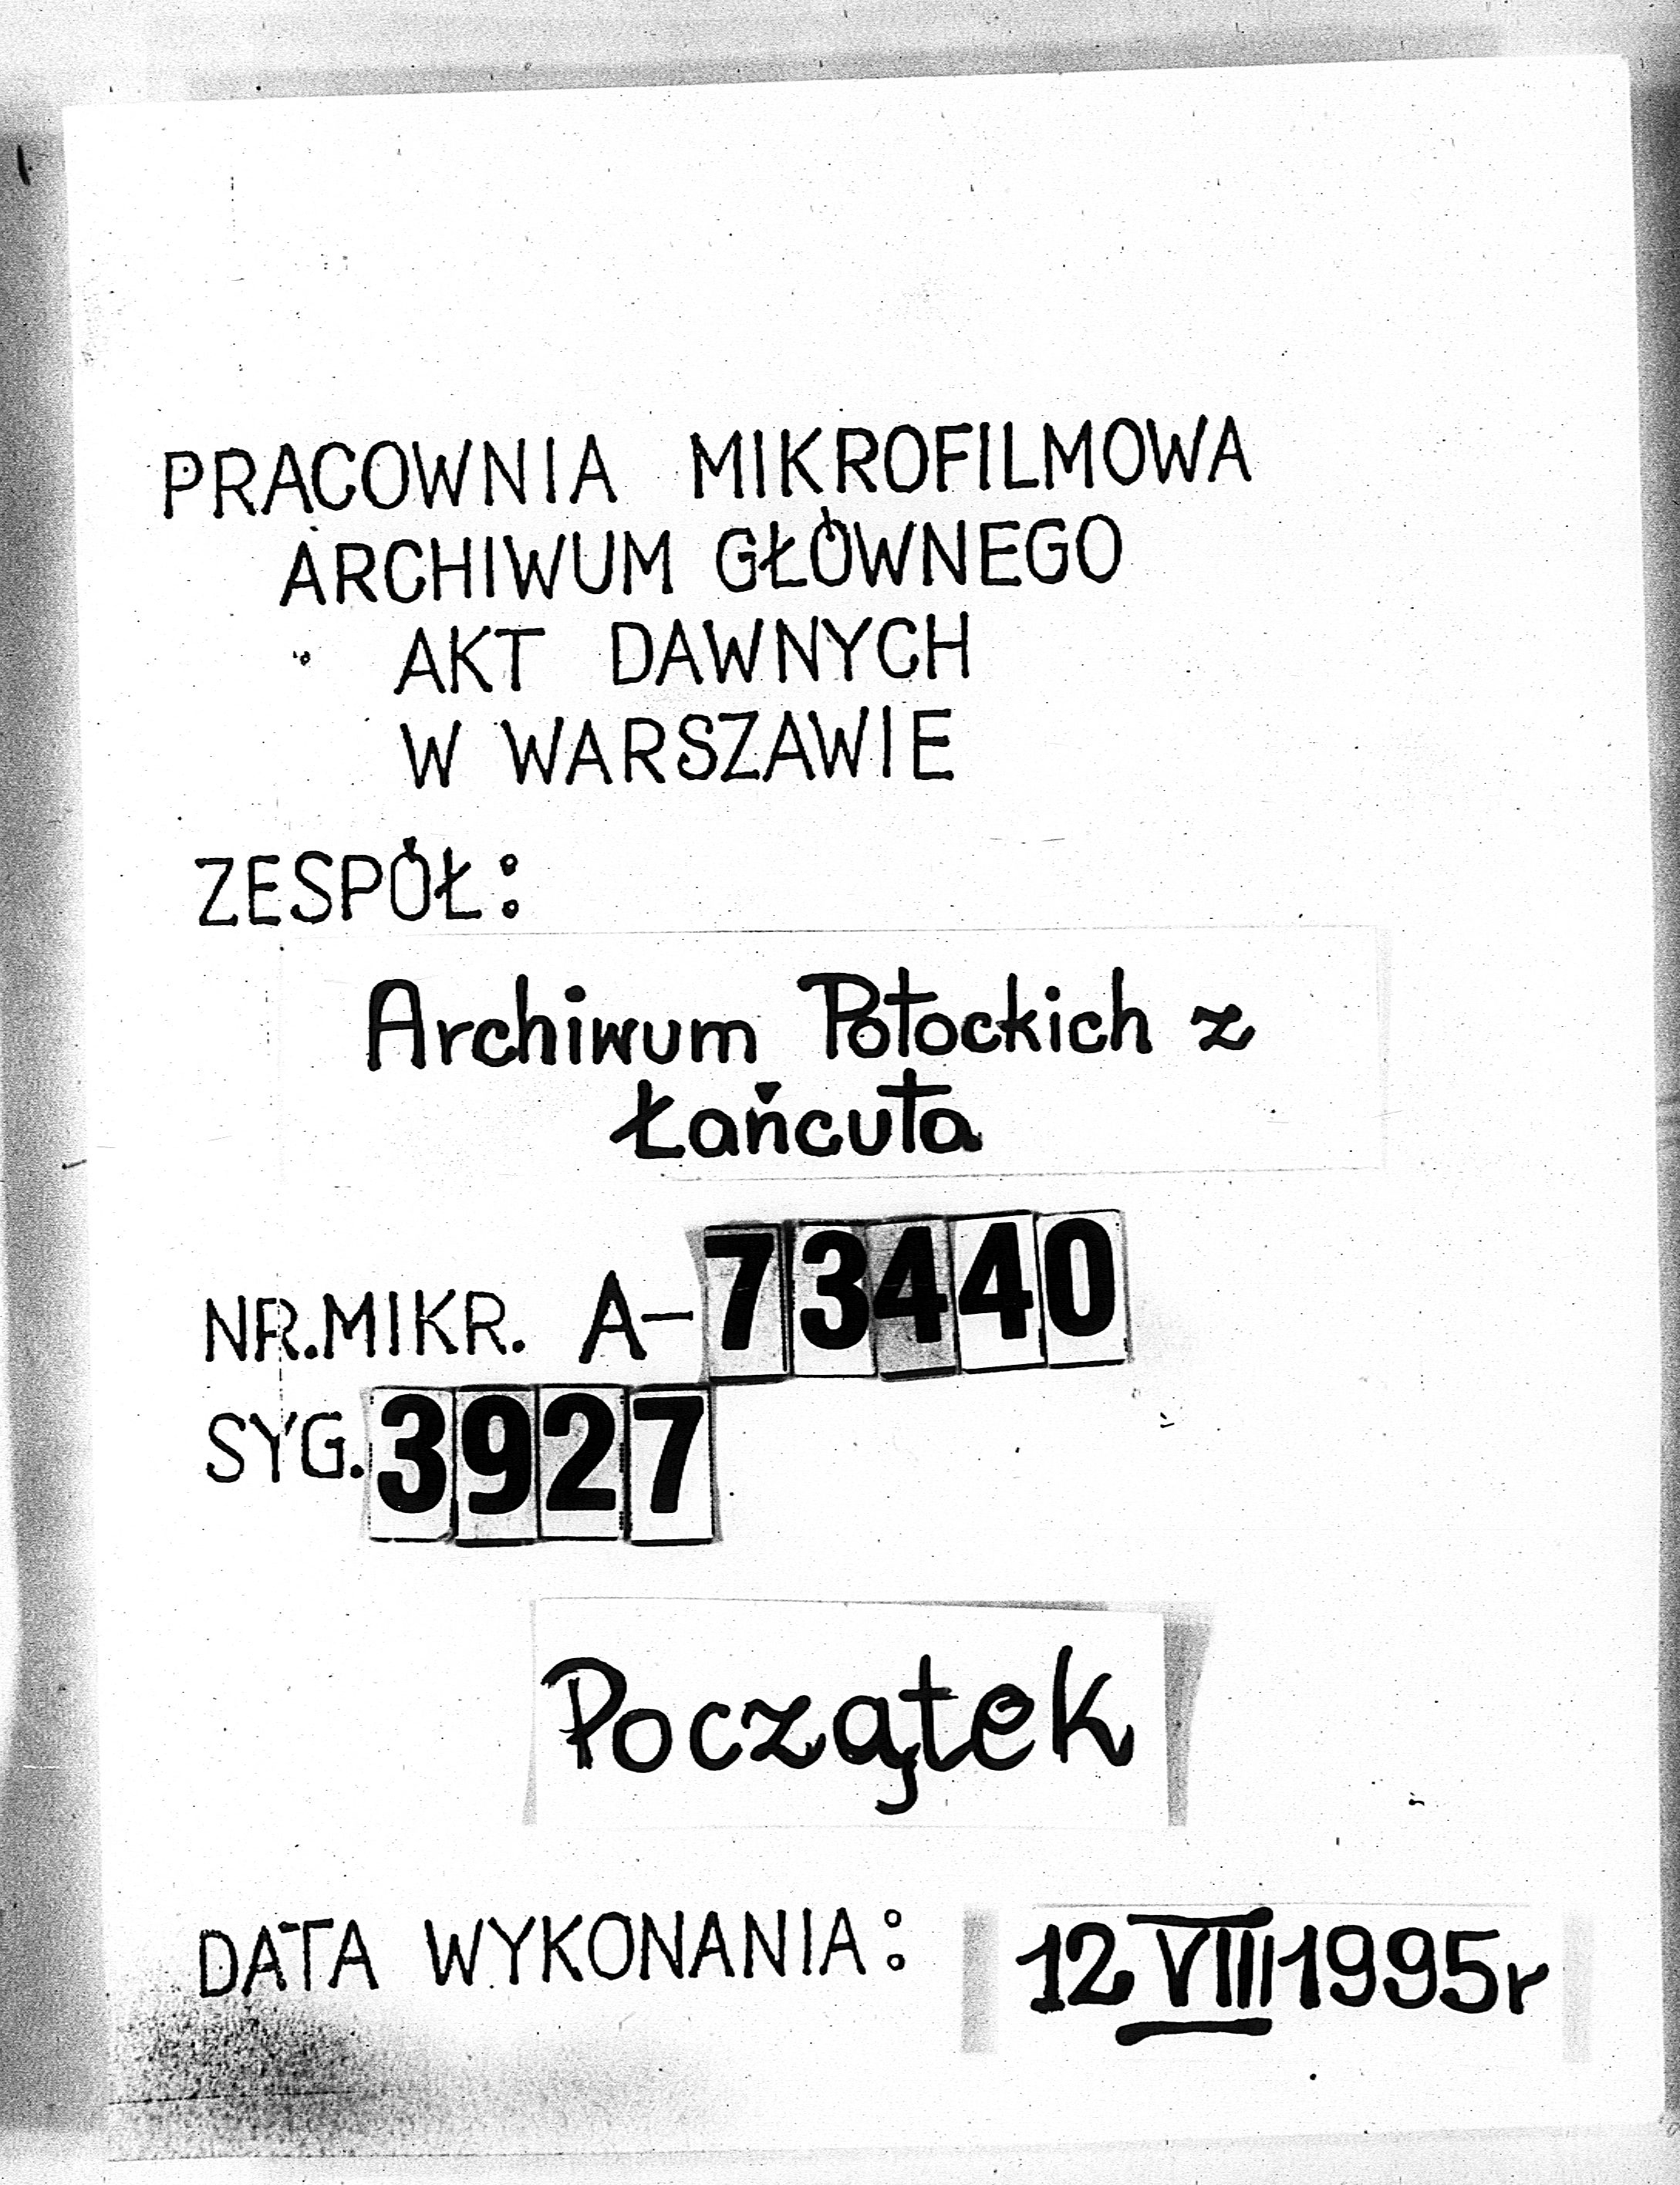 PRACOWNIA MIKROFILMOWA
ARCHIWUM GŁÓWNEGO
AKT DAWNYCH
W WARSZAWIE
ZESPÓŁ:
Archiwum Potockich z
Łańcuta
NR.MIKR. A-73440
SYG. 3927
Początek
DATA WYKONANIA: 12 VIII 1995r